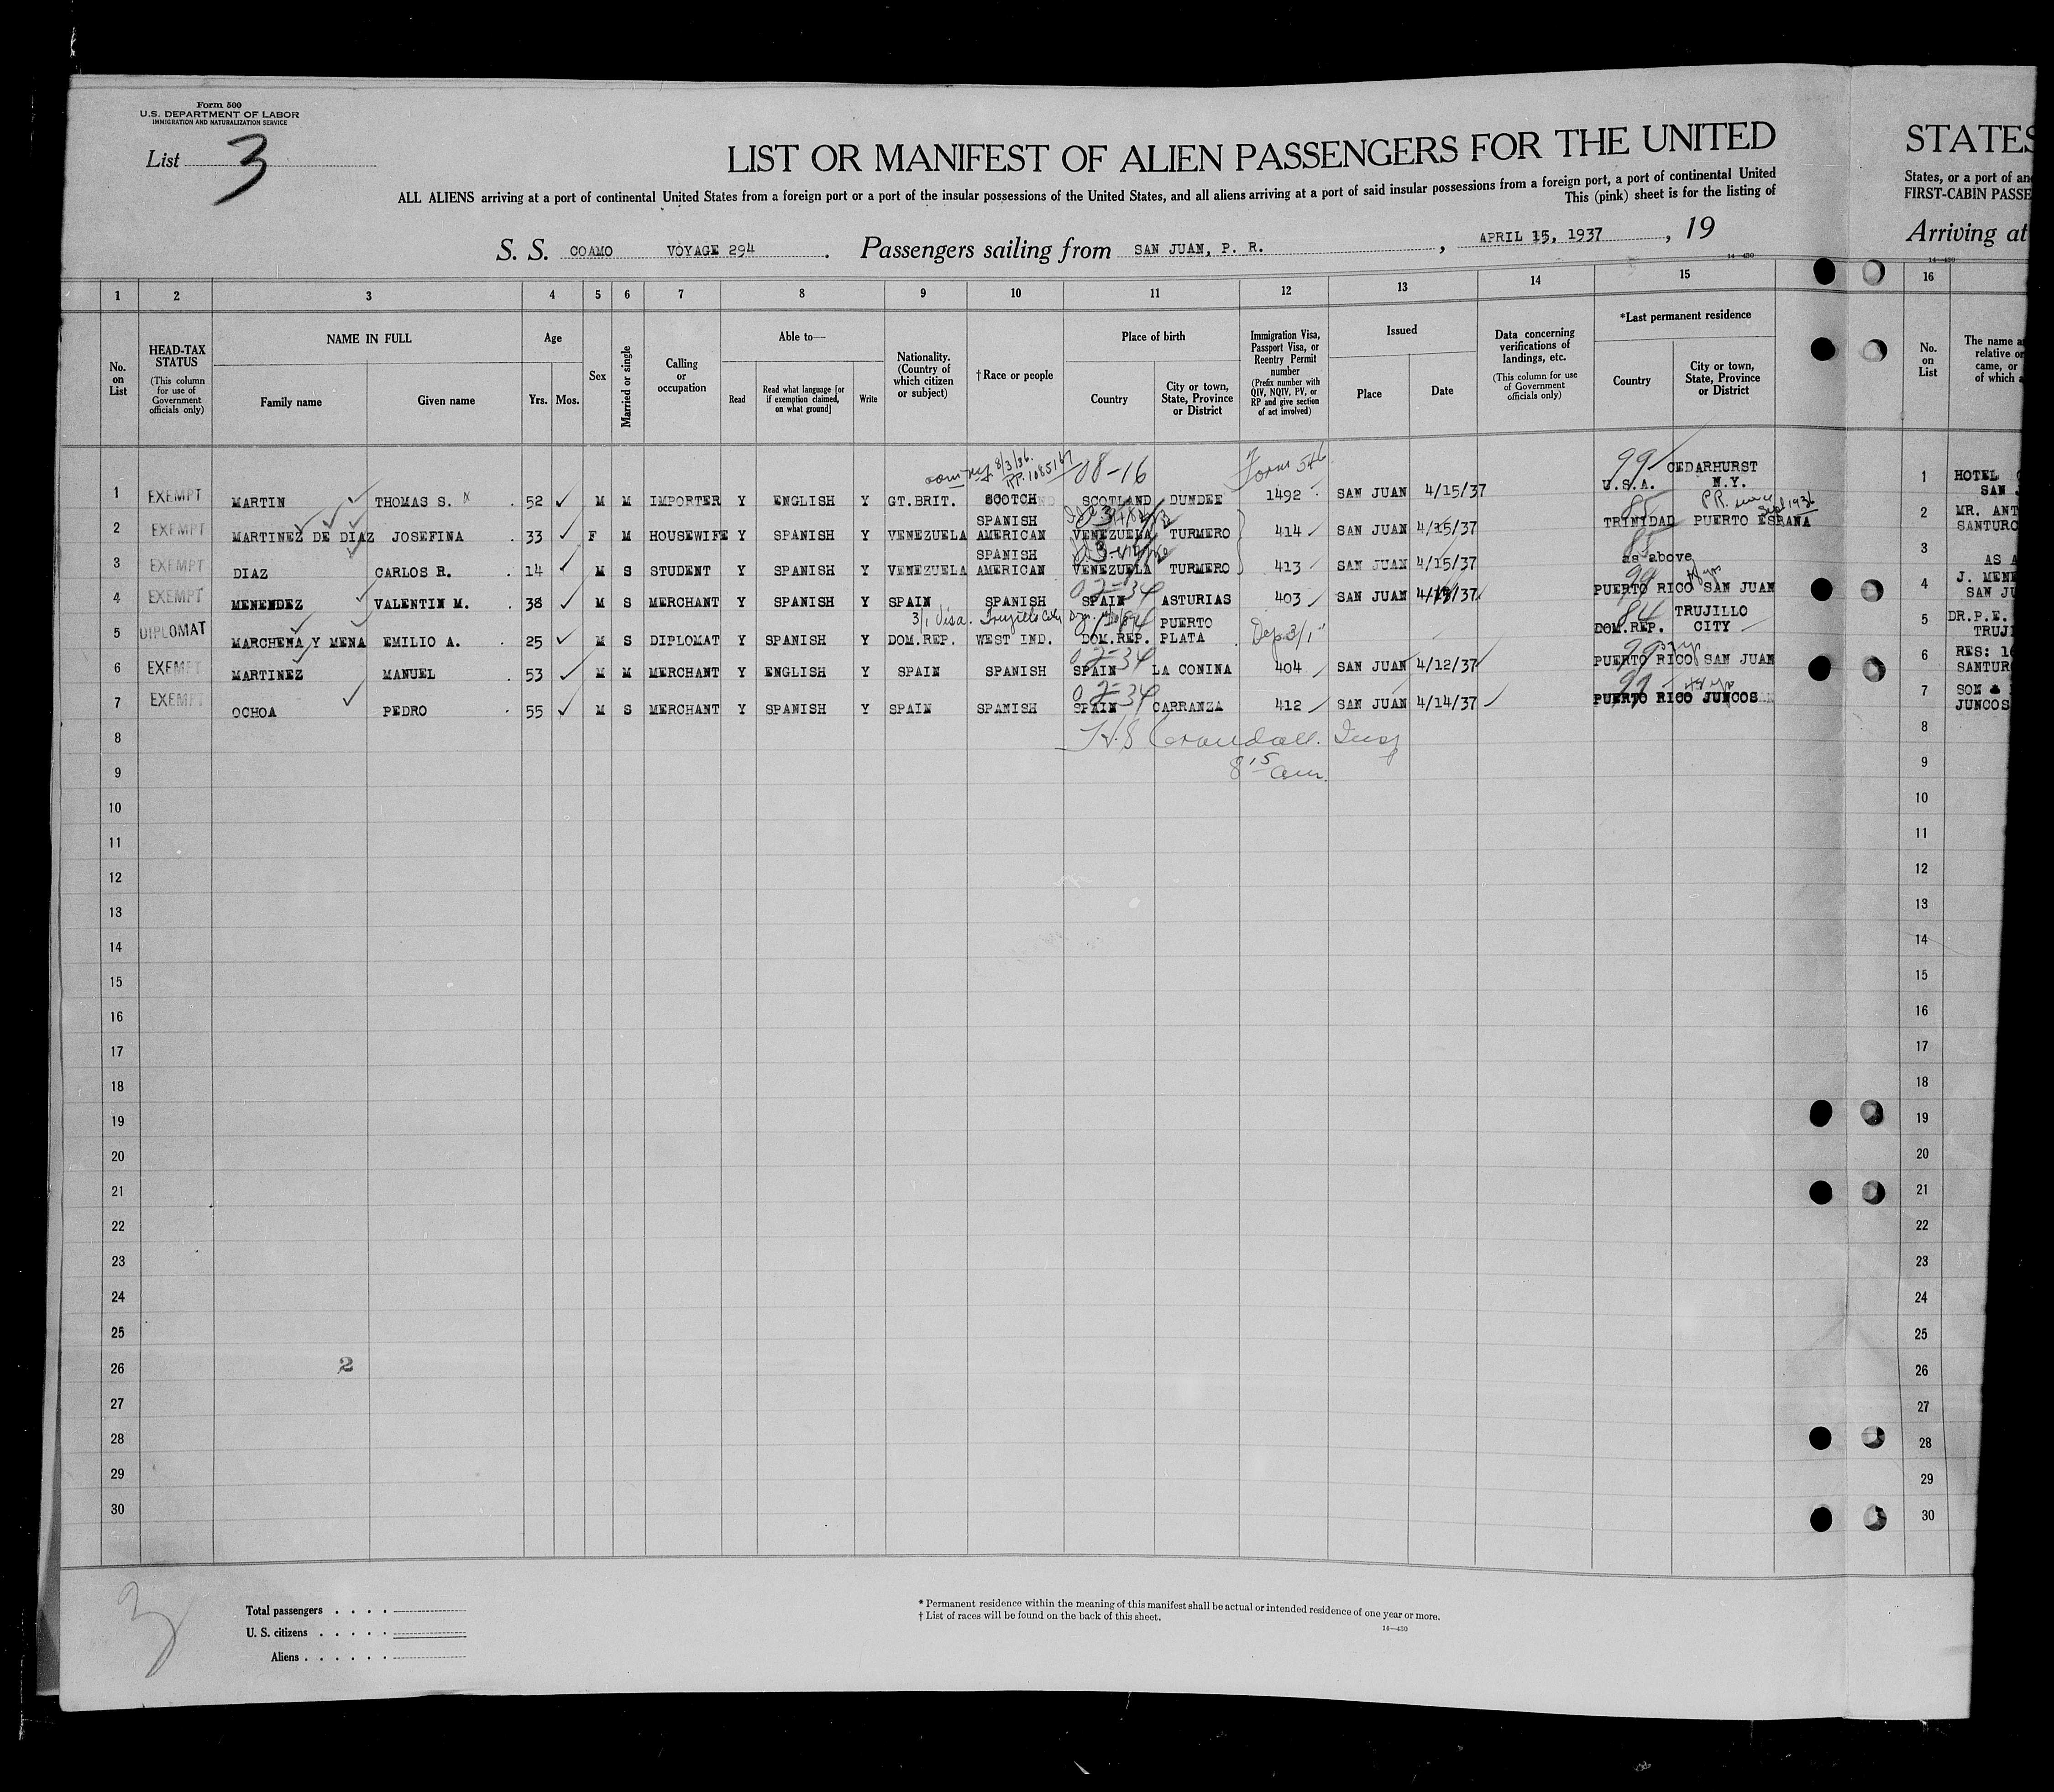 Form 500
U.S. DEPARTMENT OF LABOR
IMMIGRATION AND NATURALIZATION SERVICE
List 3
LIST OR MANIFEST OF ALIEN PASSENGERS FOR THE UNITED
STATES
ALL ALIENS arriving at a port of continental United States from a foreign port or a port of the insular possessions of the United States, and all aliens arriving at a port of said insular possessions from a foreign port, a port of continental United
States, or a port of
This (pink) sheet is for the listing of
FIRST-CABIN
S. S. COAMO VOYAGE 294 . Passengers sailing from SAN JUAN, P. R. , APRIL 15, 1937 , 19
Arriving at
14—430
14—430
1 2 3 4 5 6 7 8 9 10 11 12 13 14 15 16
No. on List
HEAD-TAX STATUS (This column for use of Government officials only)
NAME IN FULL
Family name
Given name
Age
Yrs.
Mos.
Sex
Married or single
Calling or occupation
Able to—
Read
Read what language [or if exemption claimed, on what ground]
Write
Nationality. (Country of which citizen or subject)
†Race or people
Place of birth
Country
City or town, State, Province or District
Immigration Visa, Passport Visa, or Reentry Permit number (Prefix number with QIV, NQIV, PV, or RP and give section of act involved)
Issued
Place
Date
Data concerning verifications of landings, etc. (This column for use of Government officials only)
*Last permanent residence
Country
City or town, State, Province or District
No. on List
The name
relative or
came, or
of which
8/3/36. 08-16 Form 546 99
1 EXEMPT MARTIN THOMAS S. 52 M M IMPORTER Y ENGLISH Y GT.BRIT. SCOTCH SCOTLAND DUNDEE 1492 SAN JUAN 4/15/37 U.S.A. CEDARHURST N.Y. 1 HOTEL
SAN
P.R. since Sept 1936
2 EXEMPT MARTINEZ DE DIAZ JOSEFINA 33 F M HOUSEWIFE Y SPANISH Y VENEZUELA SPANISH AMERICAN VENEZUELA TURMERO 414 SAN JUAN 4/15/37 85 TRINIDAD PUERTO ESPAÑA 2 MR. ANT
SANTURC
3 EXEMPT DIAZ CARLOS R. 14 M S STUDENT Y SPANISH Y VENEZUELA SPANISH AMERICAN VENEZUELA TURMERO 413 SAN JUAN 4/15/37 85 as above 3 AS
02-34 99
4 EXEMPT MENENDEZ VALENTIN M. 38 M S MERCHANT Y SPANISH Y SPAIN SPANISH SPAIN ASTURIAS 403 SAN JUAN PUERTO RICO SAN JUAN 4 J. MENE
SAN JU
3/1 Visa. Trujillo City 84
5 DIPLOMAT MARCHENA Y MENA EMILIO A. 25 M S DIPLOMAT Y SPANISH Y DOM.REP. WEST IND. DOM.REP. PUERTO PLATA Dep 3/1 DOM.REP. TRUJILLO CITY 5 DR.P.E.
TRUJI
02-34
6 EXEMPT MARTINEZ MANUEL 53 M M MERCHANT Y ENGLISH Y SPAIN SPANISH SPAIN LA CONINA 404 SAN JUAN 4/12/37 PUERTO RICO SAN JUAN 6 RES: 16
SANTUR
02-34 99 48 yrs
7 EXEMPT OCHOA PEDRO 55 M S MERCHANT Y SPANISH Y SPAIN SPANISH SPAIN CARRANZA 412 SAN JUAN 4/14/37 PUERTO RICO JUNCOS 7 SON &
JUNCOS
8 Crandall. Insp 8
9 8 15 am. 9
10 10
11 11
12 12
13 13
14 14
15 15
16 16
17 17
18 18
19 19
20 20
21 21
22 22
23 23
24 24
25 25
26 2 26
27 27
28 28
29 29
30 30
3
Total passengers
U. S. citizens
Aliens
* Permanent residence within the meaning of this manifest shall be actual or intended residence of one year or more.
† List of races will be found on the back of this sheet.
14—430